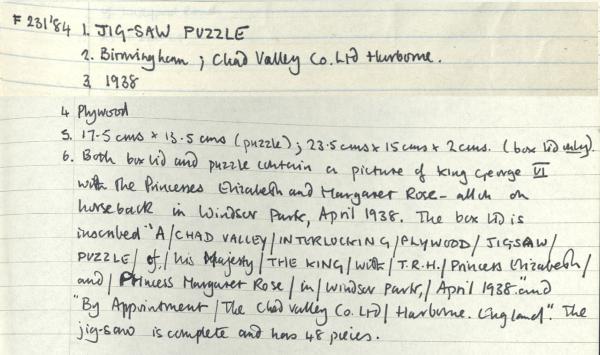 F 231'84 1. JIG-SAW PUZZLE
2. Birmingham ; Chad Valley Co. Ltd Harborne.
3. 1938
4. Plywood
5. 17.5 cms x 13.5 cms (puzzle) ; 23.5 cms x 15 cms x 2 cms. (box lid only).
6. Both box lid and puzzle contain a picture of King George VI
with the Princesses Elizabeth and Margaret Rose - all on
horseback in Windsor Park, April 1938. The box lid is
inscribed "A / CHAD VALLEY / INTERLOCKING / PLYWOOD / JIGSAW /
PUZZLE / of / his Majesty / THE KING / with / T.R.H. / Princess Elizabeth /
and / Princess Margaret Rose / in / Windsor Park, / April 1938." and
"By Appointment / The Chad Valley Co. Ltd / Harborne. England". The
jig-saw is complete and has 48 pieces.